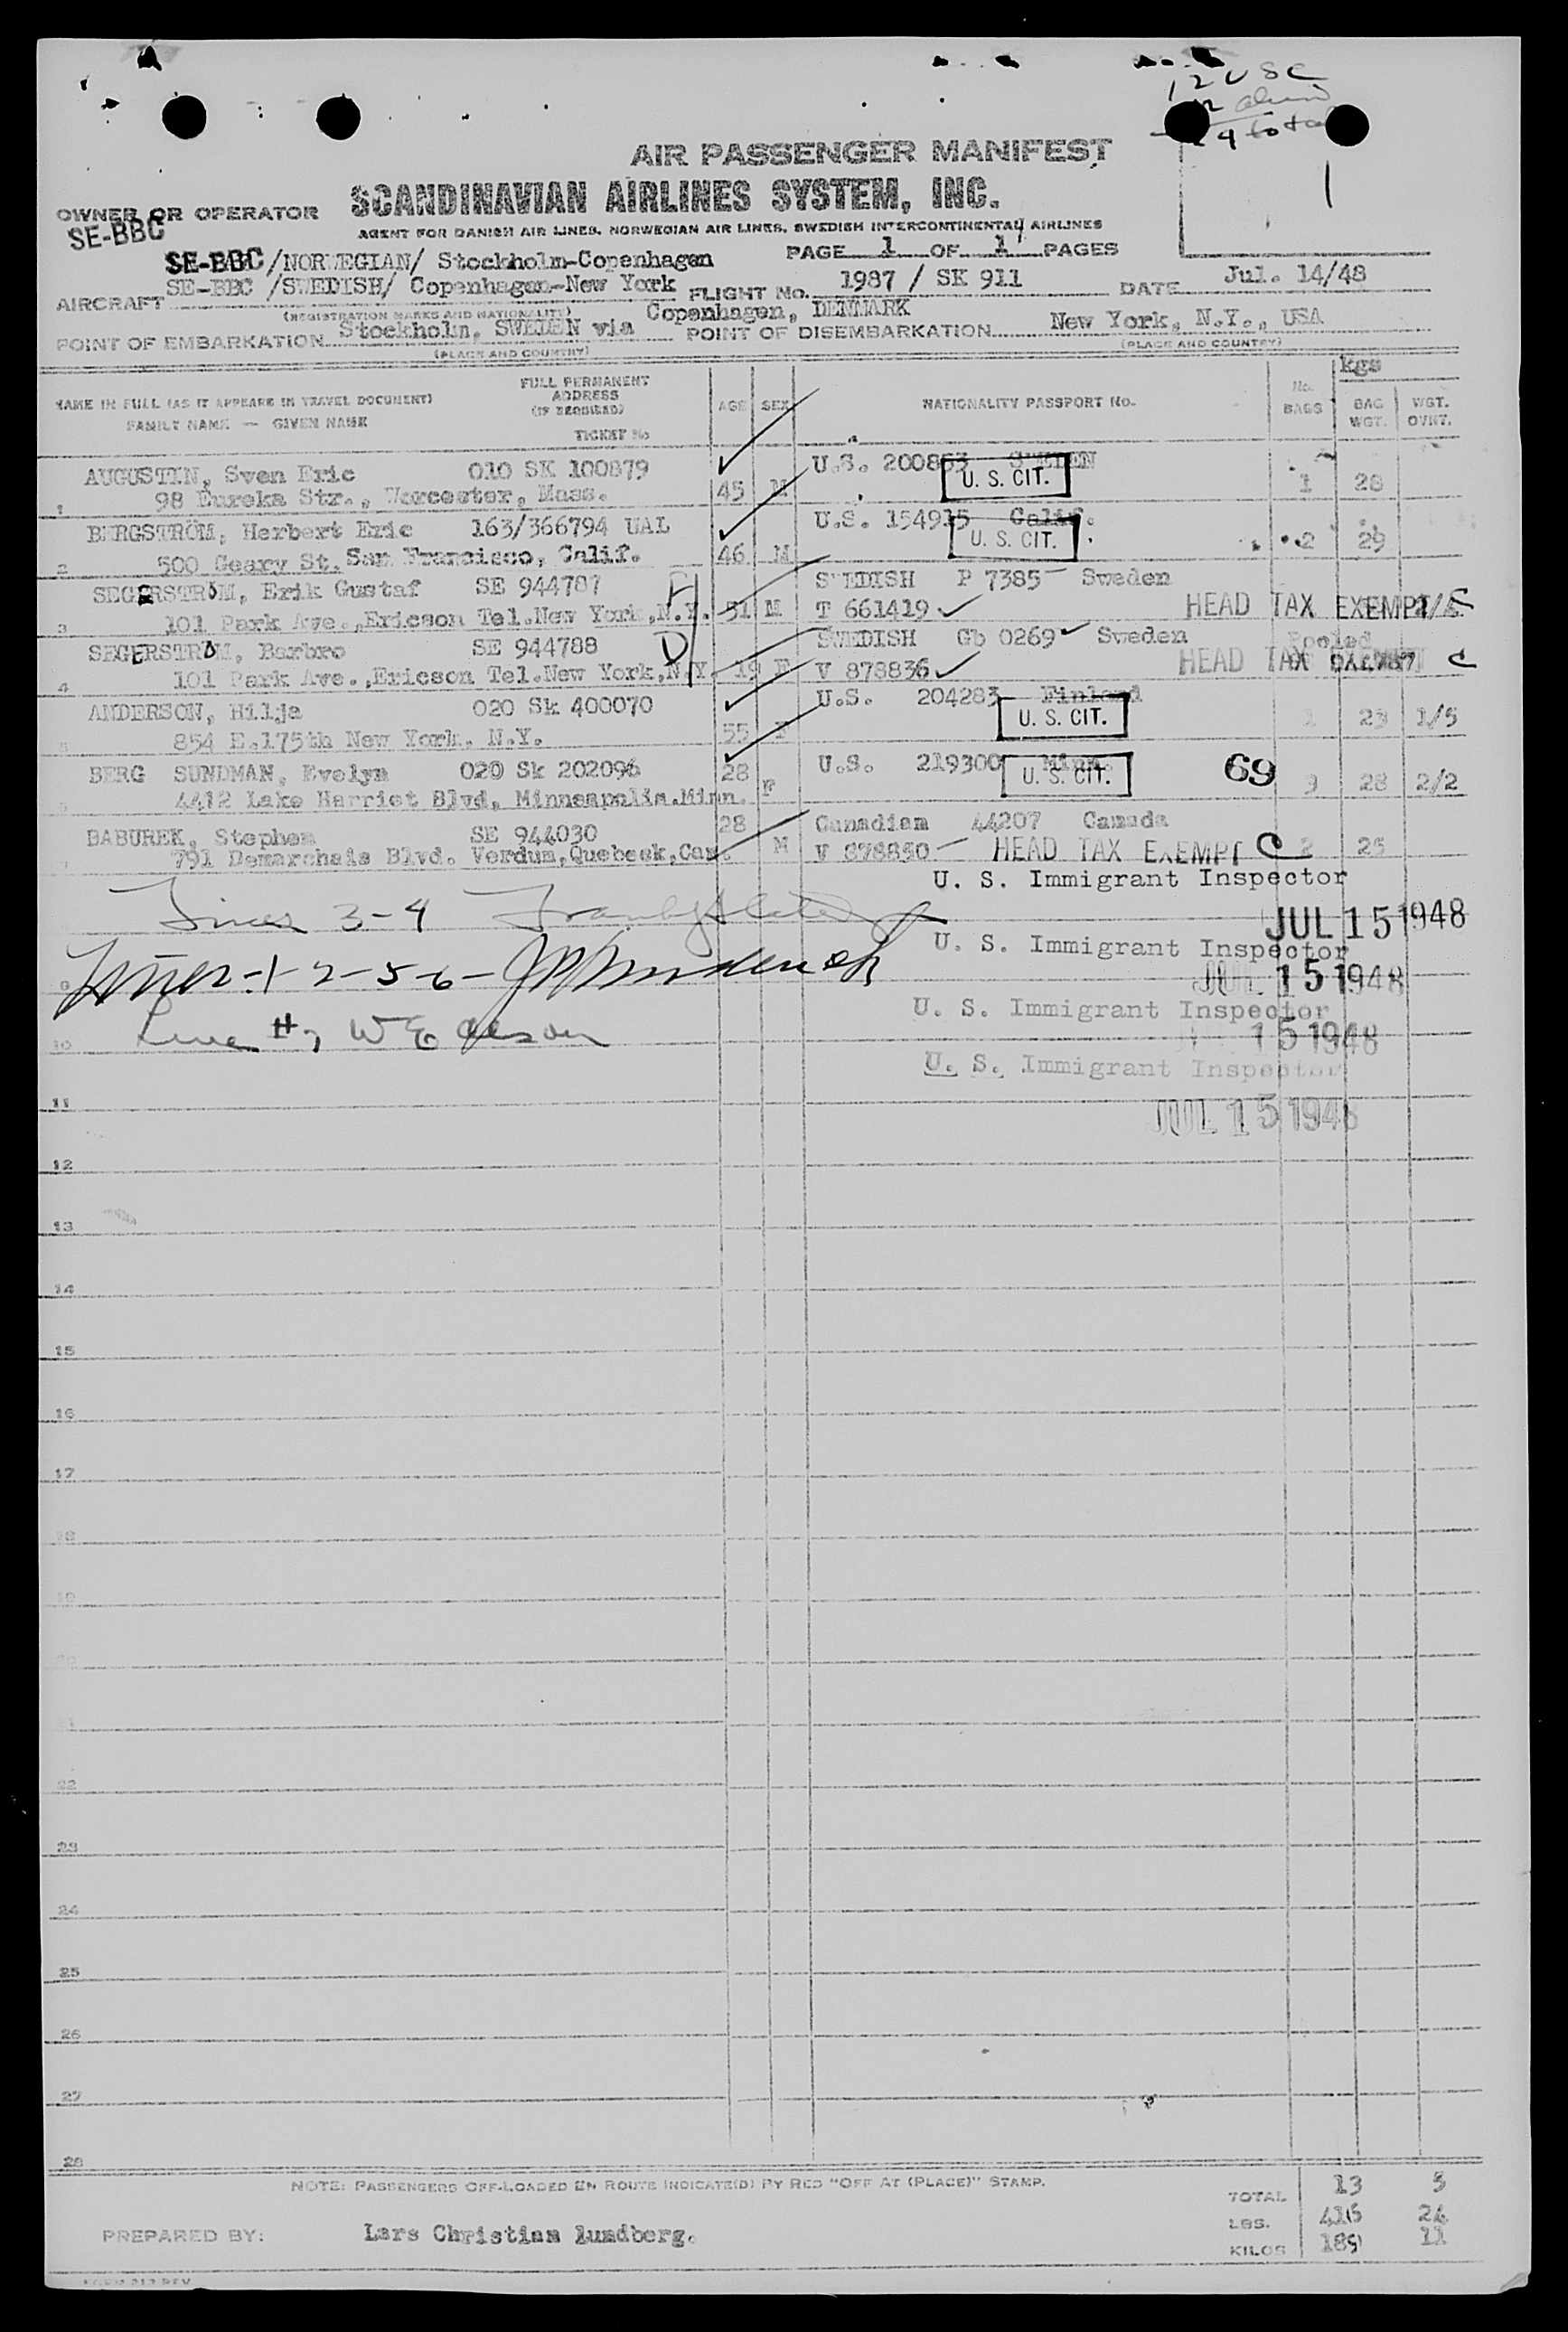 12 USC
total
AIR PASSENGER MANIFEST
OWNER OR OPERATOR SCANDINAVIAN AIRLINES SYSTEM, INC.
SE-BBC
AGENT FOR DANISH AIR LINES, NORWEGIAN AIR LINES, SWEDISH INTERCONTINENTAL AIRLINES
1
SE-BBC /NORWEGIAN/ Stockholm-Copenhagen PAGE 1 OF 1 PAGES
AIRCRAFT SE-BBC /SWEDISH/ Copenhagen-New York FLIGHT No. 1987 / SK 911 DATE Jul. 14/48
(REGISTRATION MARKS AND NATIONALITY)
POINT OF EMBARKATION Stockholm, SWEDEN via Copenhagen, DENMARK POINT OF DISEMBARKATION New York, N.Y., USA
(PLACE AND COUNTRY) (PLACE AND COUNTRY)
kgs
NAME IN FULL (AS IT APPEARS IN TRAVEL DOCUMENT) FULL PERMANENT ADDRESS (IF REQUIRED) AGE SEX NATIONALITY PASSPORT No. No. BAGS BAG WGT. WGT. OVWT.
FAMILY NAME — GIVEN NAME TICKET No
AUGUSTIN, Sven Eric 010 SK 100879 U.S. 200863 SWEDEN
1 98 Eureka Str., Worcester, Mass. 45 M U. S. CIT. 1 28
BERGSTRÖM, Herbert Eric 163/366794 UAL U.S. 154915 Calif.
2 500 Geary St. San Francisco, Calif. 46 M U. S. CIT. 2 29
SEGERSTRÖM, Erik Gustaf SE 944787 SWEDISH P 7385 Sweden
3 101 Park Ave.,Ericson Tel.New York,N.Y. 51 M T 661419 HEAD TAX EXEMPT C
SEGERSTRÖM, Barbro SE 944788 D SWEDISH Gb 0269 Sweden Pooled
4 101 Park Ave.,Ericson Tel.New York,N.Y. 19 F V 878836 HEAD TAX EXEMPT C
ANDERSON, Hilja 020 Sk 400070 U.S. 204283 Finland
5 854 E.175th New York. N.Y. 55 F U. S. CIT. 1 23 1/5
BERG SUNDMAN, Evelyn 020 Sk 202096 28 F U.S. 219300 Minn. U. S. CIT. 69
6 4412 Lake Harriet Blvd, Minneapolis.Minn. 3 28 2/2
BABUREK, Stephen SE 944030 28 Canadian 44207 Canada
7 791 Demarchais Blvd. Verdum,Quebeck,Can. M V 878850 HEAD TAX EXEMPT C 2 25
U. S. Immigrant Inspector
Lines 3-4 JUL 15 1948
U. S. Immigrant Inspector
9 Lines-1-2-5-6- JUL 15 1948
U. S. Immigrant Inspector
10 Line #7 W E Olson 15 1948
U. S. Immigrant Inspector
11 JUL 15 1948
12
13
14
15
16
17
18
19
20
21
22
23
24
25
26
27
28
NOTE: PASSENGERS OFF-LOADED EN ROUTE INDICATE(D) BY RED "OFF AT (PLACE)" STAMP.
TOTAL 13 5
LBS. 416 24
PREPARED BY: Lars Christian Lundberg.
KILOS 189 11